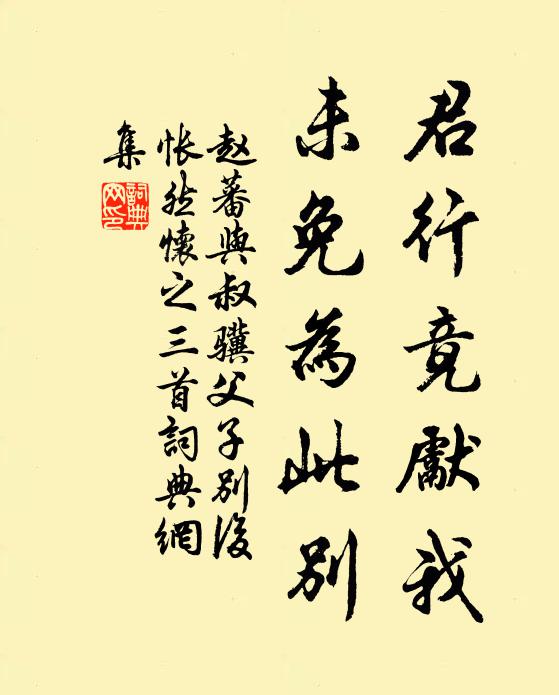 君行竟獻我
未免為此別
赵蕃與叔驥父子別後
悵然懷之三首詞典網
集
詞典
网印